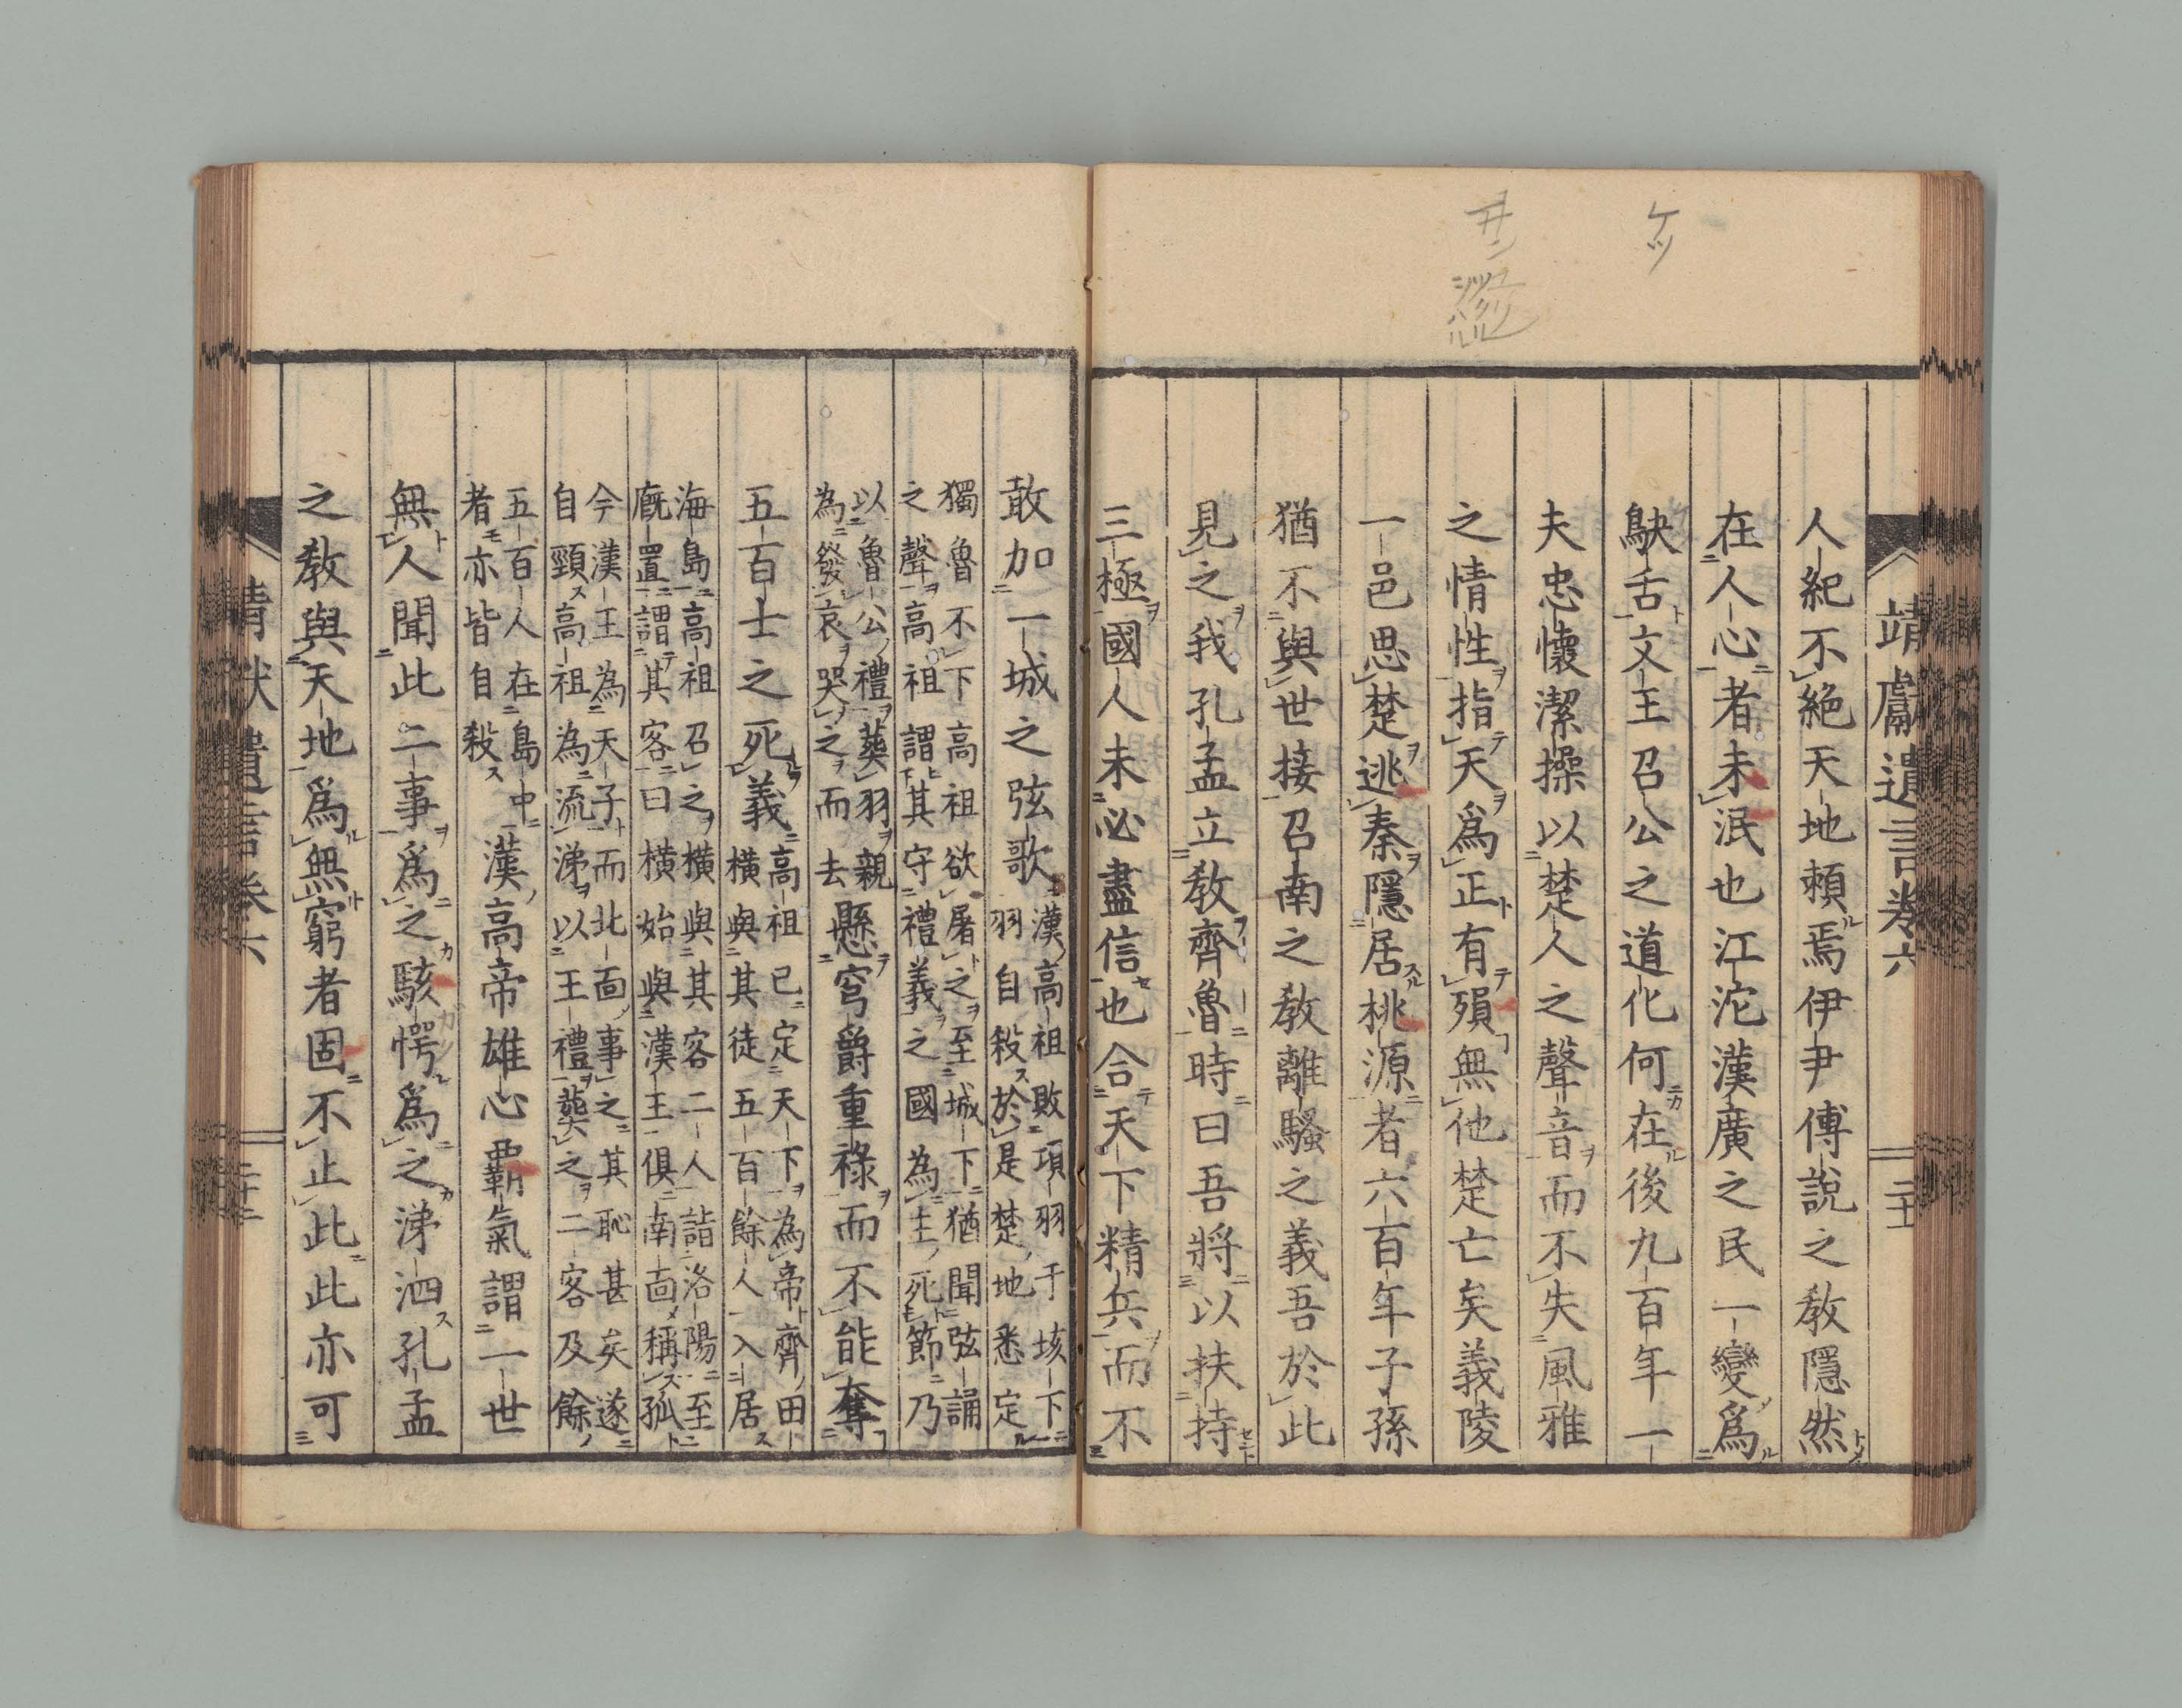 ケツ
ヰン
靖獻遺言卷六
二十一
人紀不絕天地賴焉伊尹傅說之教隱然
在人心者未泯也江沱漢廣之民一變爲
鴃舌文王召公之道化何在後九百年一
夫忠懷潔操以楚人之聲音而不失風雅
之情性指天爲正有殞無他楚亡矣義陵
一邑思楚逃秦隱居桃源者六百年子孫
猶不與世接召南之教離騷之義吾於此
見之我孔孟立教齊魯時曰吾將以扶持
三極國人未必盡信也合天下精兵而不
敢加一城之弦歌漢高祖敗項羽于垓下
羽自殺於是楚地悉定
獨魯不下高祖欲屠之至城下猶聞弦誦
之聲高祖謂其守禮義之國為主死節乃
以魯公禮葬羽親
為發哀哭之而去懸穹爵重祿而不能奪
五百士之死義高祖已定天下為帝齊田
橫與其徒五百餘人入居
海島高祖召之橫與其客二人詣洛陽至
廐置謂其客曰橫始與漢王俱南面稱孤
今漢王為天子而北面事之其恥甚矣遂
自頸高祖為流涕以王禮葬之二客及餘
五百人在島中
者亦皆自殺漢高帝雄心霸氣謂一世
無人聞此二事爲之駭愕爲之涕泗孔孟
之教與天地爲無窮者固不止此此亦可
靖獻遺言卷六
二十二